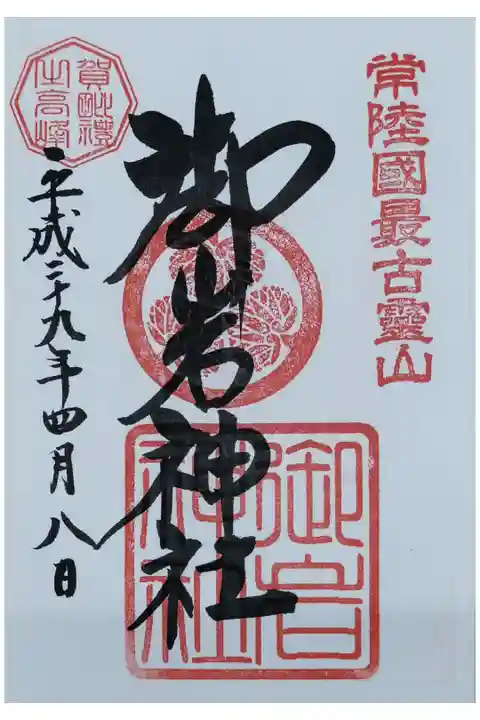 常陸國最古霊山
御岩神社
御岩神社
賀毗禮之高峰
平成二十九年四月八日